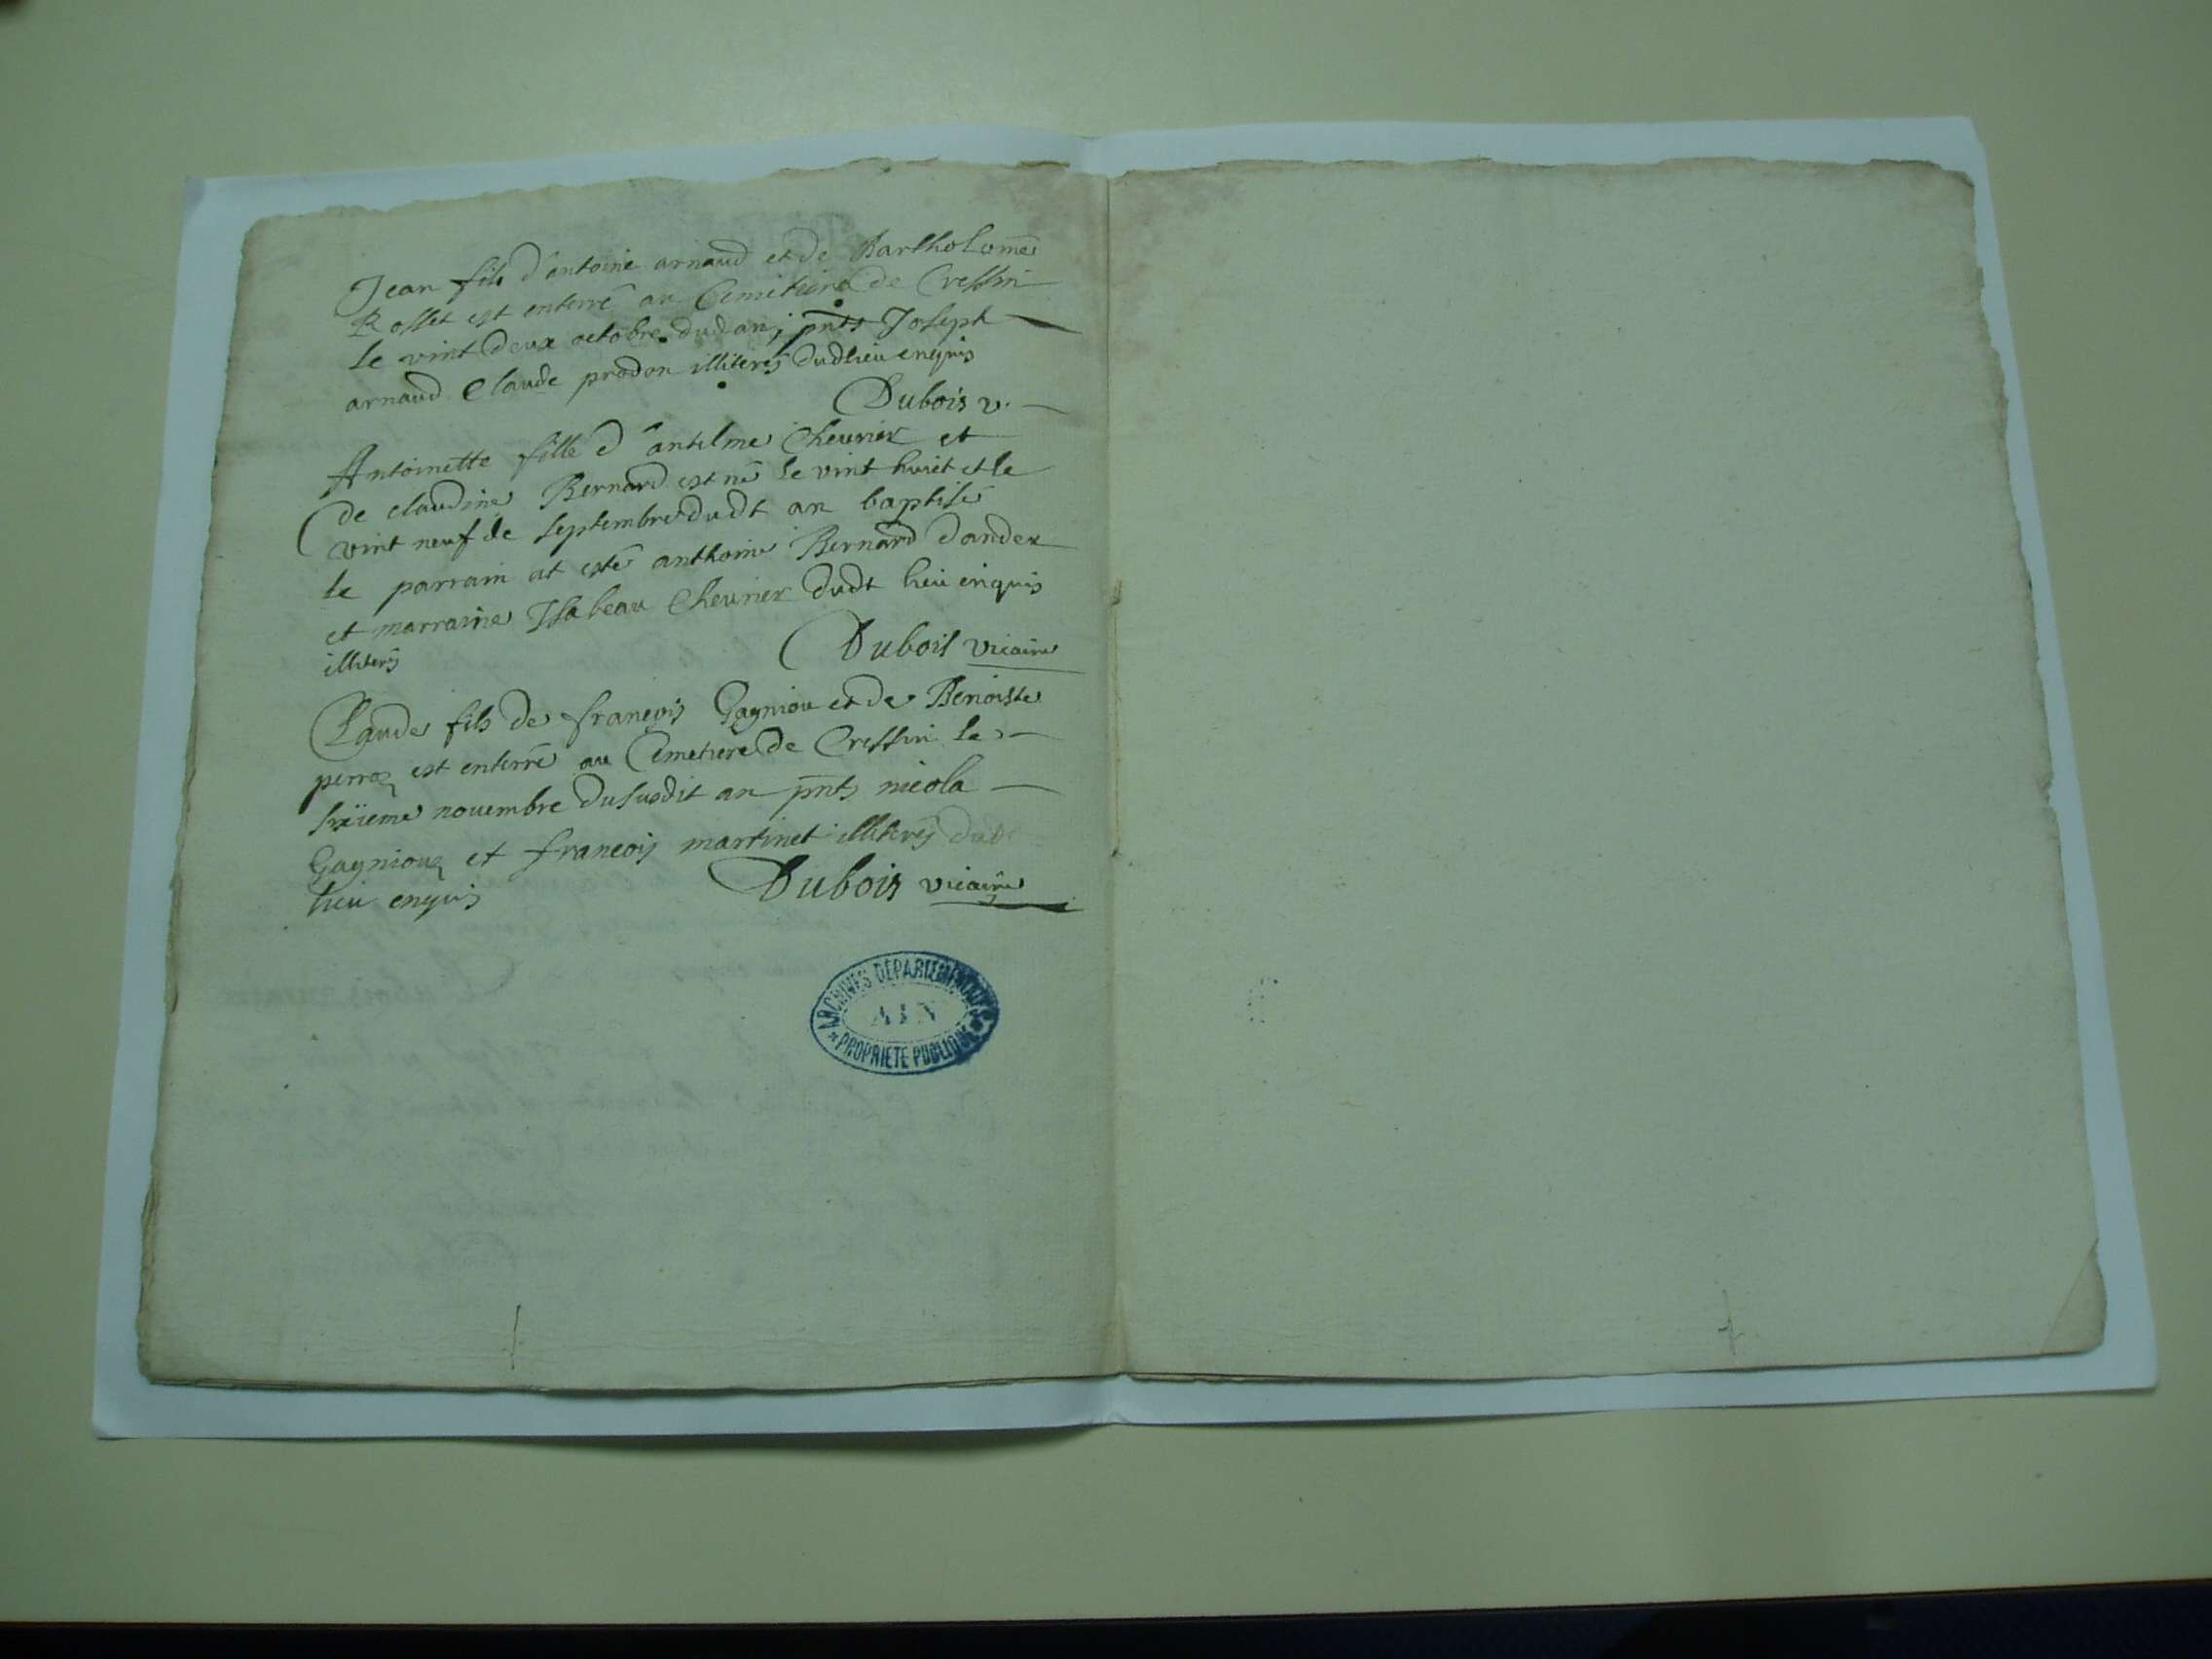 Jean fils d'antoine arnaud et de Bartholomé
Rosset est enterré au Cemitiere de Cressin
le vint deux octobre dudan, pnts Joseph
arnaud Claude prodon illiterés dudlieu enquis
Dubois v.
Antoinette fille d'antelme Cheurier et
de claudine Bernard est né le vint huict et le
vint neuf de septembre dudt an baptisé
le parrain at esté anthoine Bernard dandex
et marraine Isabeau Cheurier dudt lieu enquis
illiterés Dubois vicaire
Claude fils de francois Gagniou et de Benoiste
perroz est enterré au Cemetiere de Cressin le
sixieme nouembre dususdit an pnts nicola
Gagniouz et francois martinet illiterés dudt
lieu enquis Dubois vicaire
ARCHIVES DÉPARTEMENTALES
AIN
* PROPRIÉTÉ PUBLIQUE *